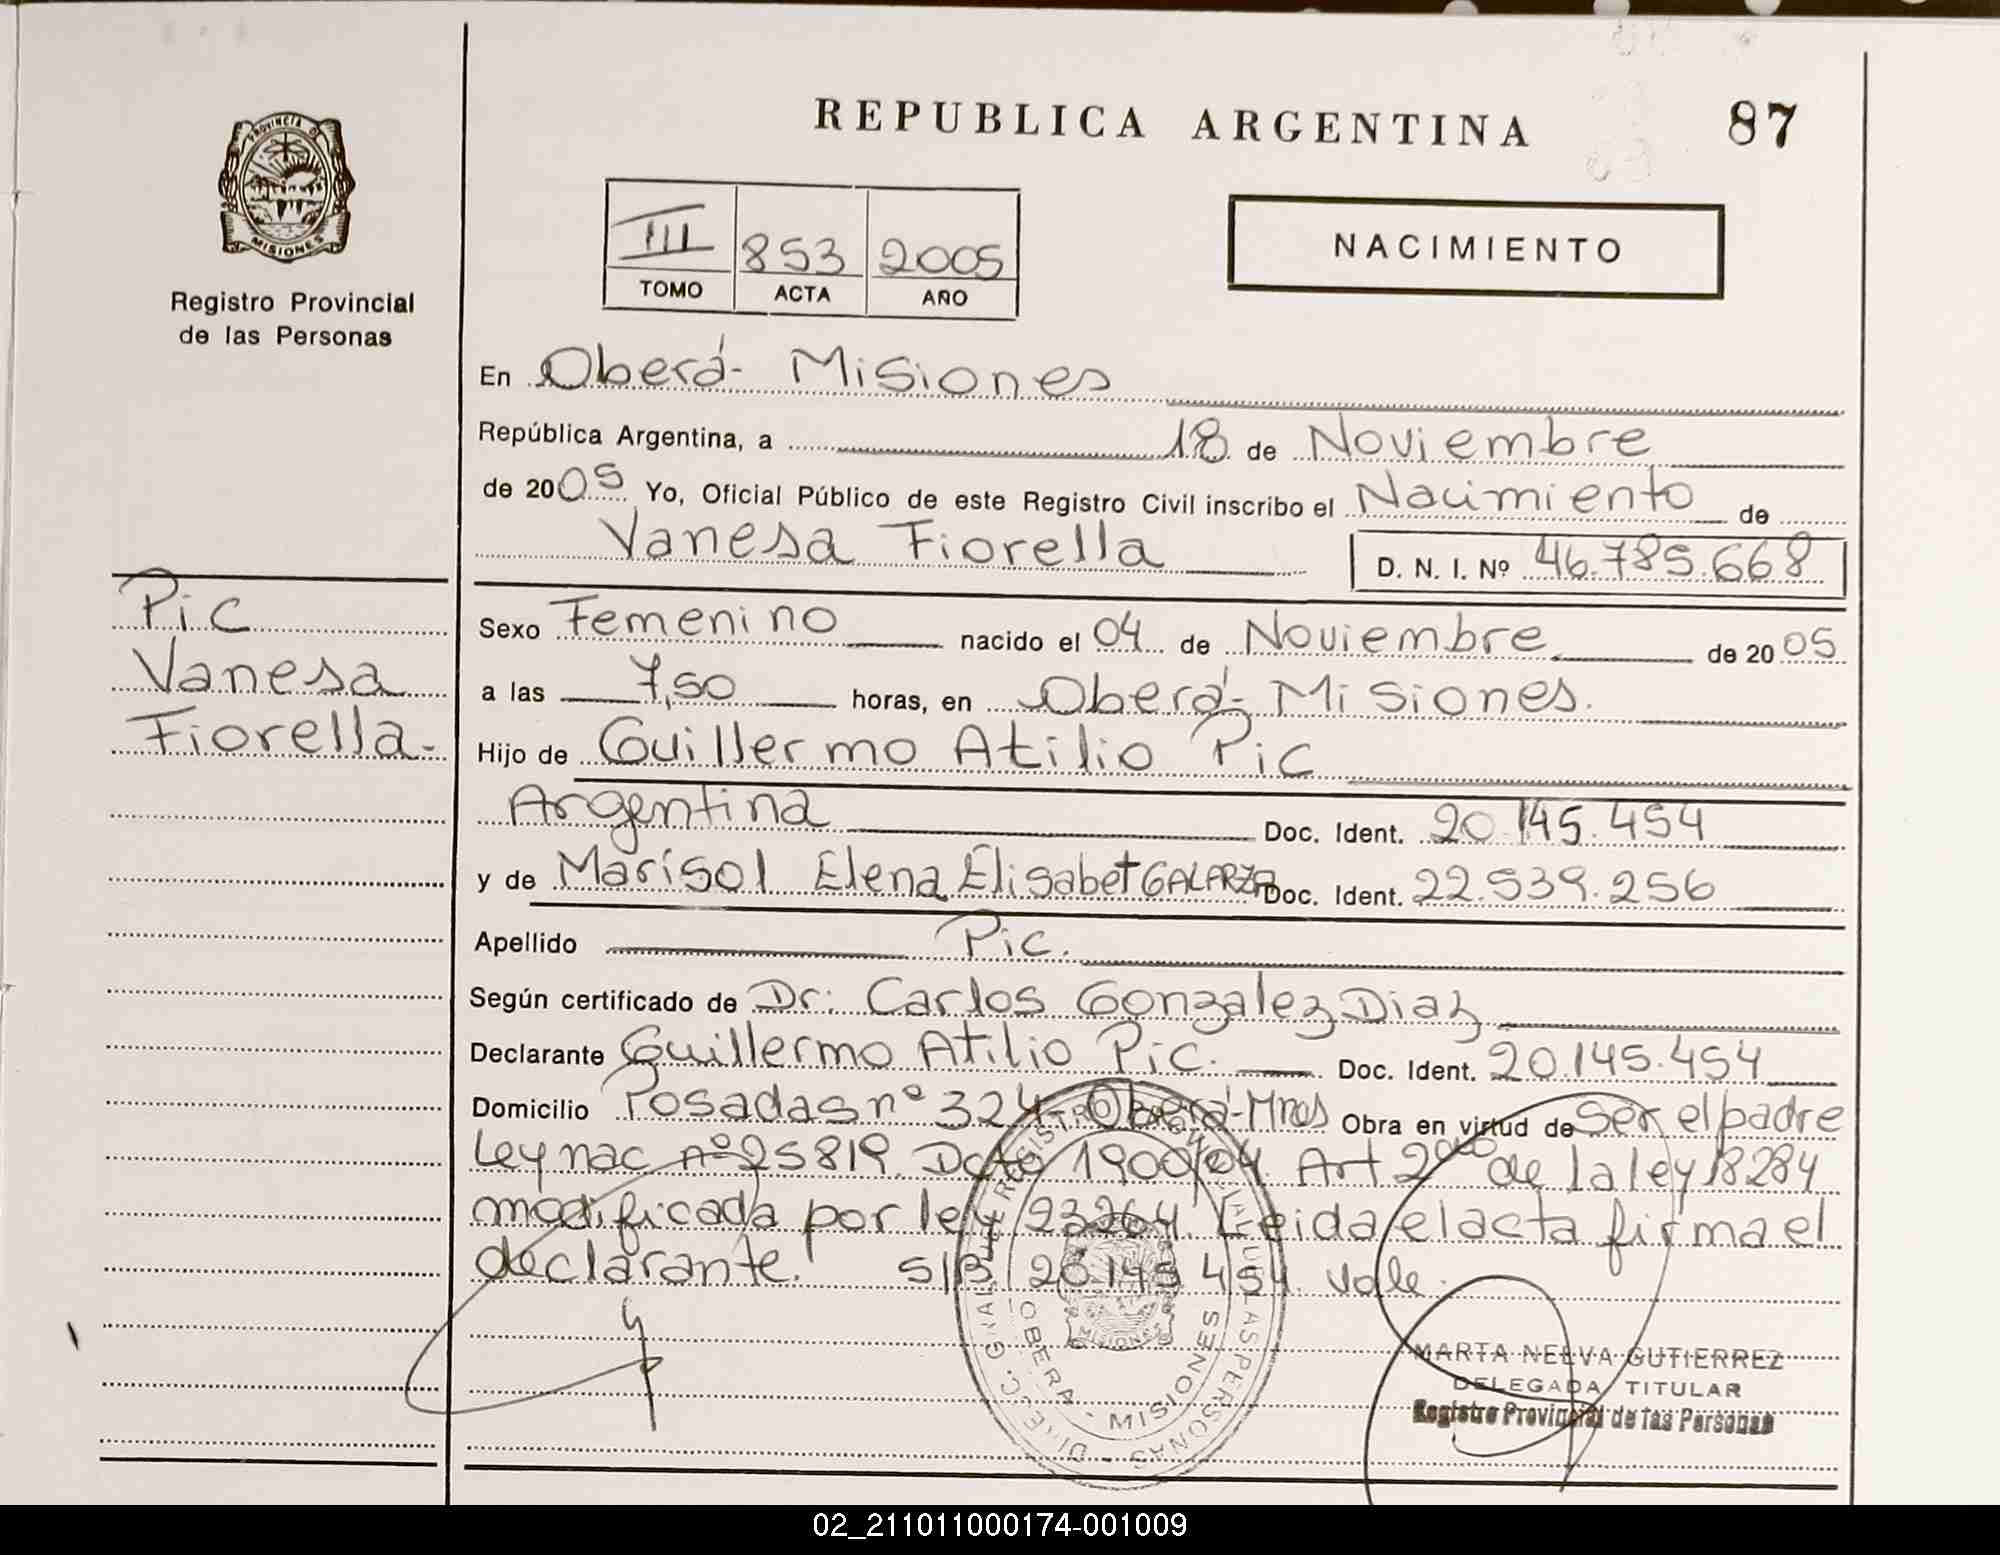 REPUBLICA ARGENTINA 87
PROVINCIA D
MISIONES
Registro Provincial
de las Personas
III 853 2005
TOMO ACTA AÑO
NACIMIENTO
En Oberá - Misiones
República Argentina, a 18 de Noviembre
de 2005 Yo, Oficial Público de este Registro Civil inscribo el Nacimiento de
Vanesa Fiorella D. N. I. Nº 46.785.668
Pic
Vanesa
Fiorella.-
Sexo Femenino nacido el 04 de Noviembre de 2005
a las 7,50 horas, en Oberá - Misiones.
Hijo de Guillermo Atilio Pic
Argentina Doc. Ident. 20.145.454
y de Marisol Elena Elisabet GALARZA Doc. Ident. 22.539.256
Apellido Pic.
Según certificado de Dr. Carlos Gonzalez Diaz
Declarante Guillermo Atilio Pic. Doc. Ident. 20.145.454
Domicilio Posadas nº 324 - Oberá - Mnes Obra en virtud de Ser el padre
Ley nac nº 25819. Dcto 1900/04. Art 2do de la ley 18284
modificada por ley 23264 Leida el acta firma el
declarante. S/B 20.145.454. Vale.
OBERA - MISIONES
MARTA NELVA GUTIERREZ
DELEGADA TITULAR
Registro Provincial de las Personas
02_211011000174-001009